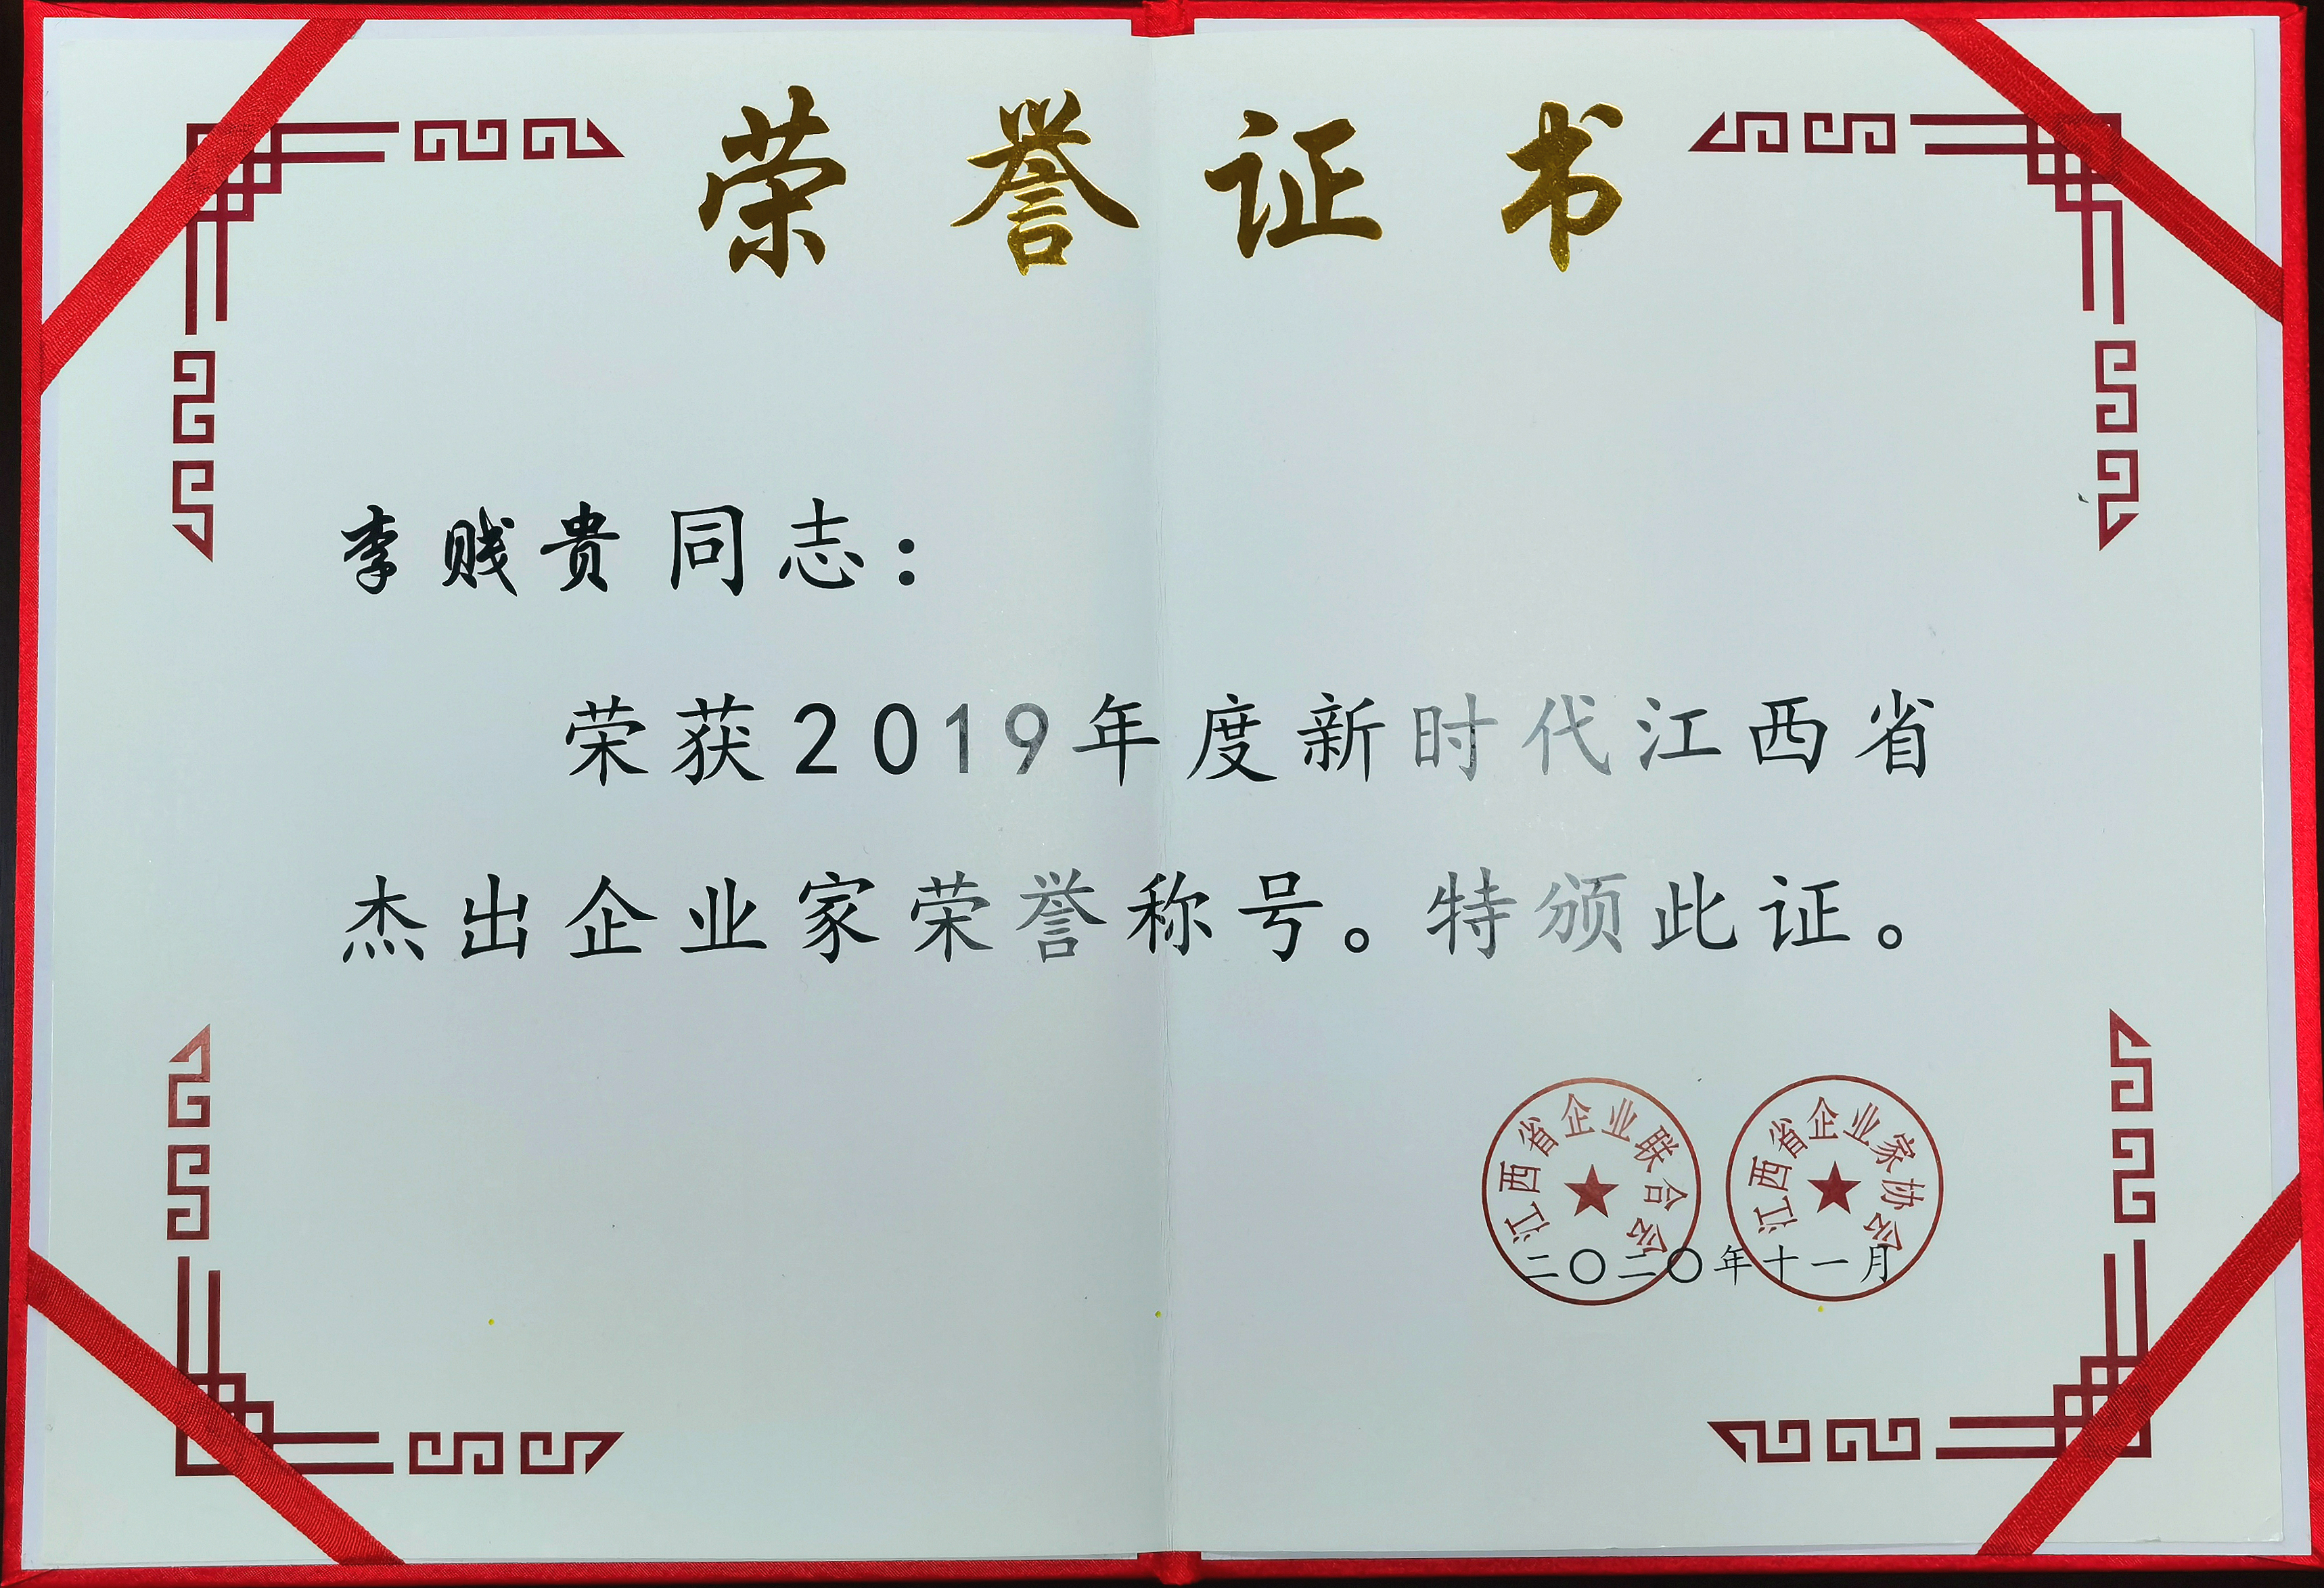 荣誉证书
李贱贵同志：
荣获2019年度新时代江西省
杰出企业家荣誉称号。特颁此证。
江西省企业联合会
江西省企业家协会
二〇二〇年十一月